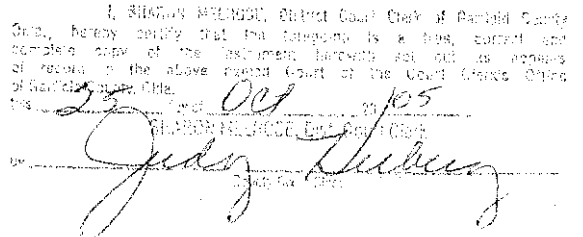 I, SHARON MELROSE, District Court Clerk of Garfield County
Okla., hereby certify that the foregoing is a true, correct and
complete copy of the instrument herewith set out as appears
of record in the above named Court of the Court Clerk's Office
of Garfield County, Okla.
this 25 day of Oct 20 05
SHARON MELROSE, Dist. Court Clerk
By Judy
Deputy